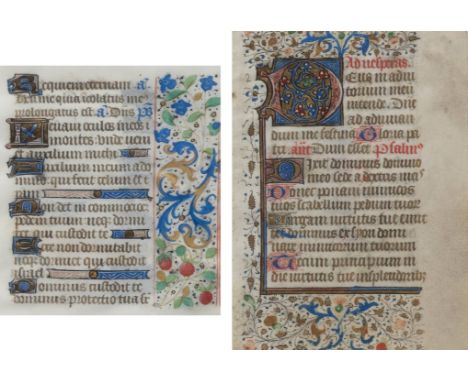 Requiem eternam .a.
Heu me quia icolatus me
prolongatus est .a. Dns ps
Levavi oculos meos i
montes unde veni
et auxilium michi
Auxilium meum a do
mino qui fecit celum et t
Non det in commotio
pedem tuum neqz dormi
tet qui custodit te
Ecce non dormitabit
neqz dormiet qui custodit
israel
Dominus custodit te
dominus protectio tua
Ad vesperas.
Deus in adiu
torium meu
intende. Dne
ad adiuvan
dum me festina Gloria pa
ter. ant Dum esset. Psalm
Dixit dominus domino
meo sede a dextris meis
Donec ponam inimicos
tuos scabellum pedum tuor
Virgam virtutis tue emit
tet dominus ex syon domi
inimicorum tuorum
Tecum principium in
die virtutis tue in splendoribz